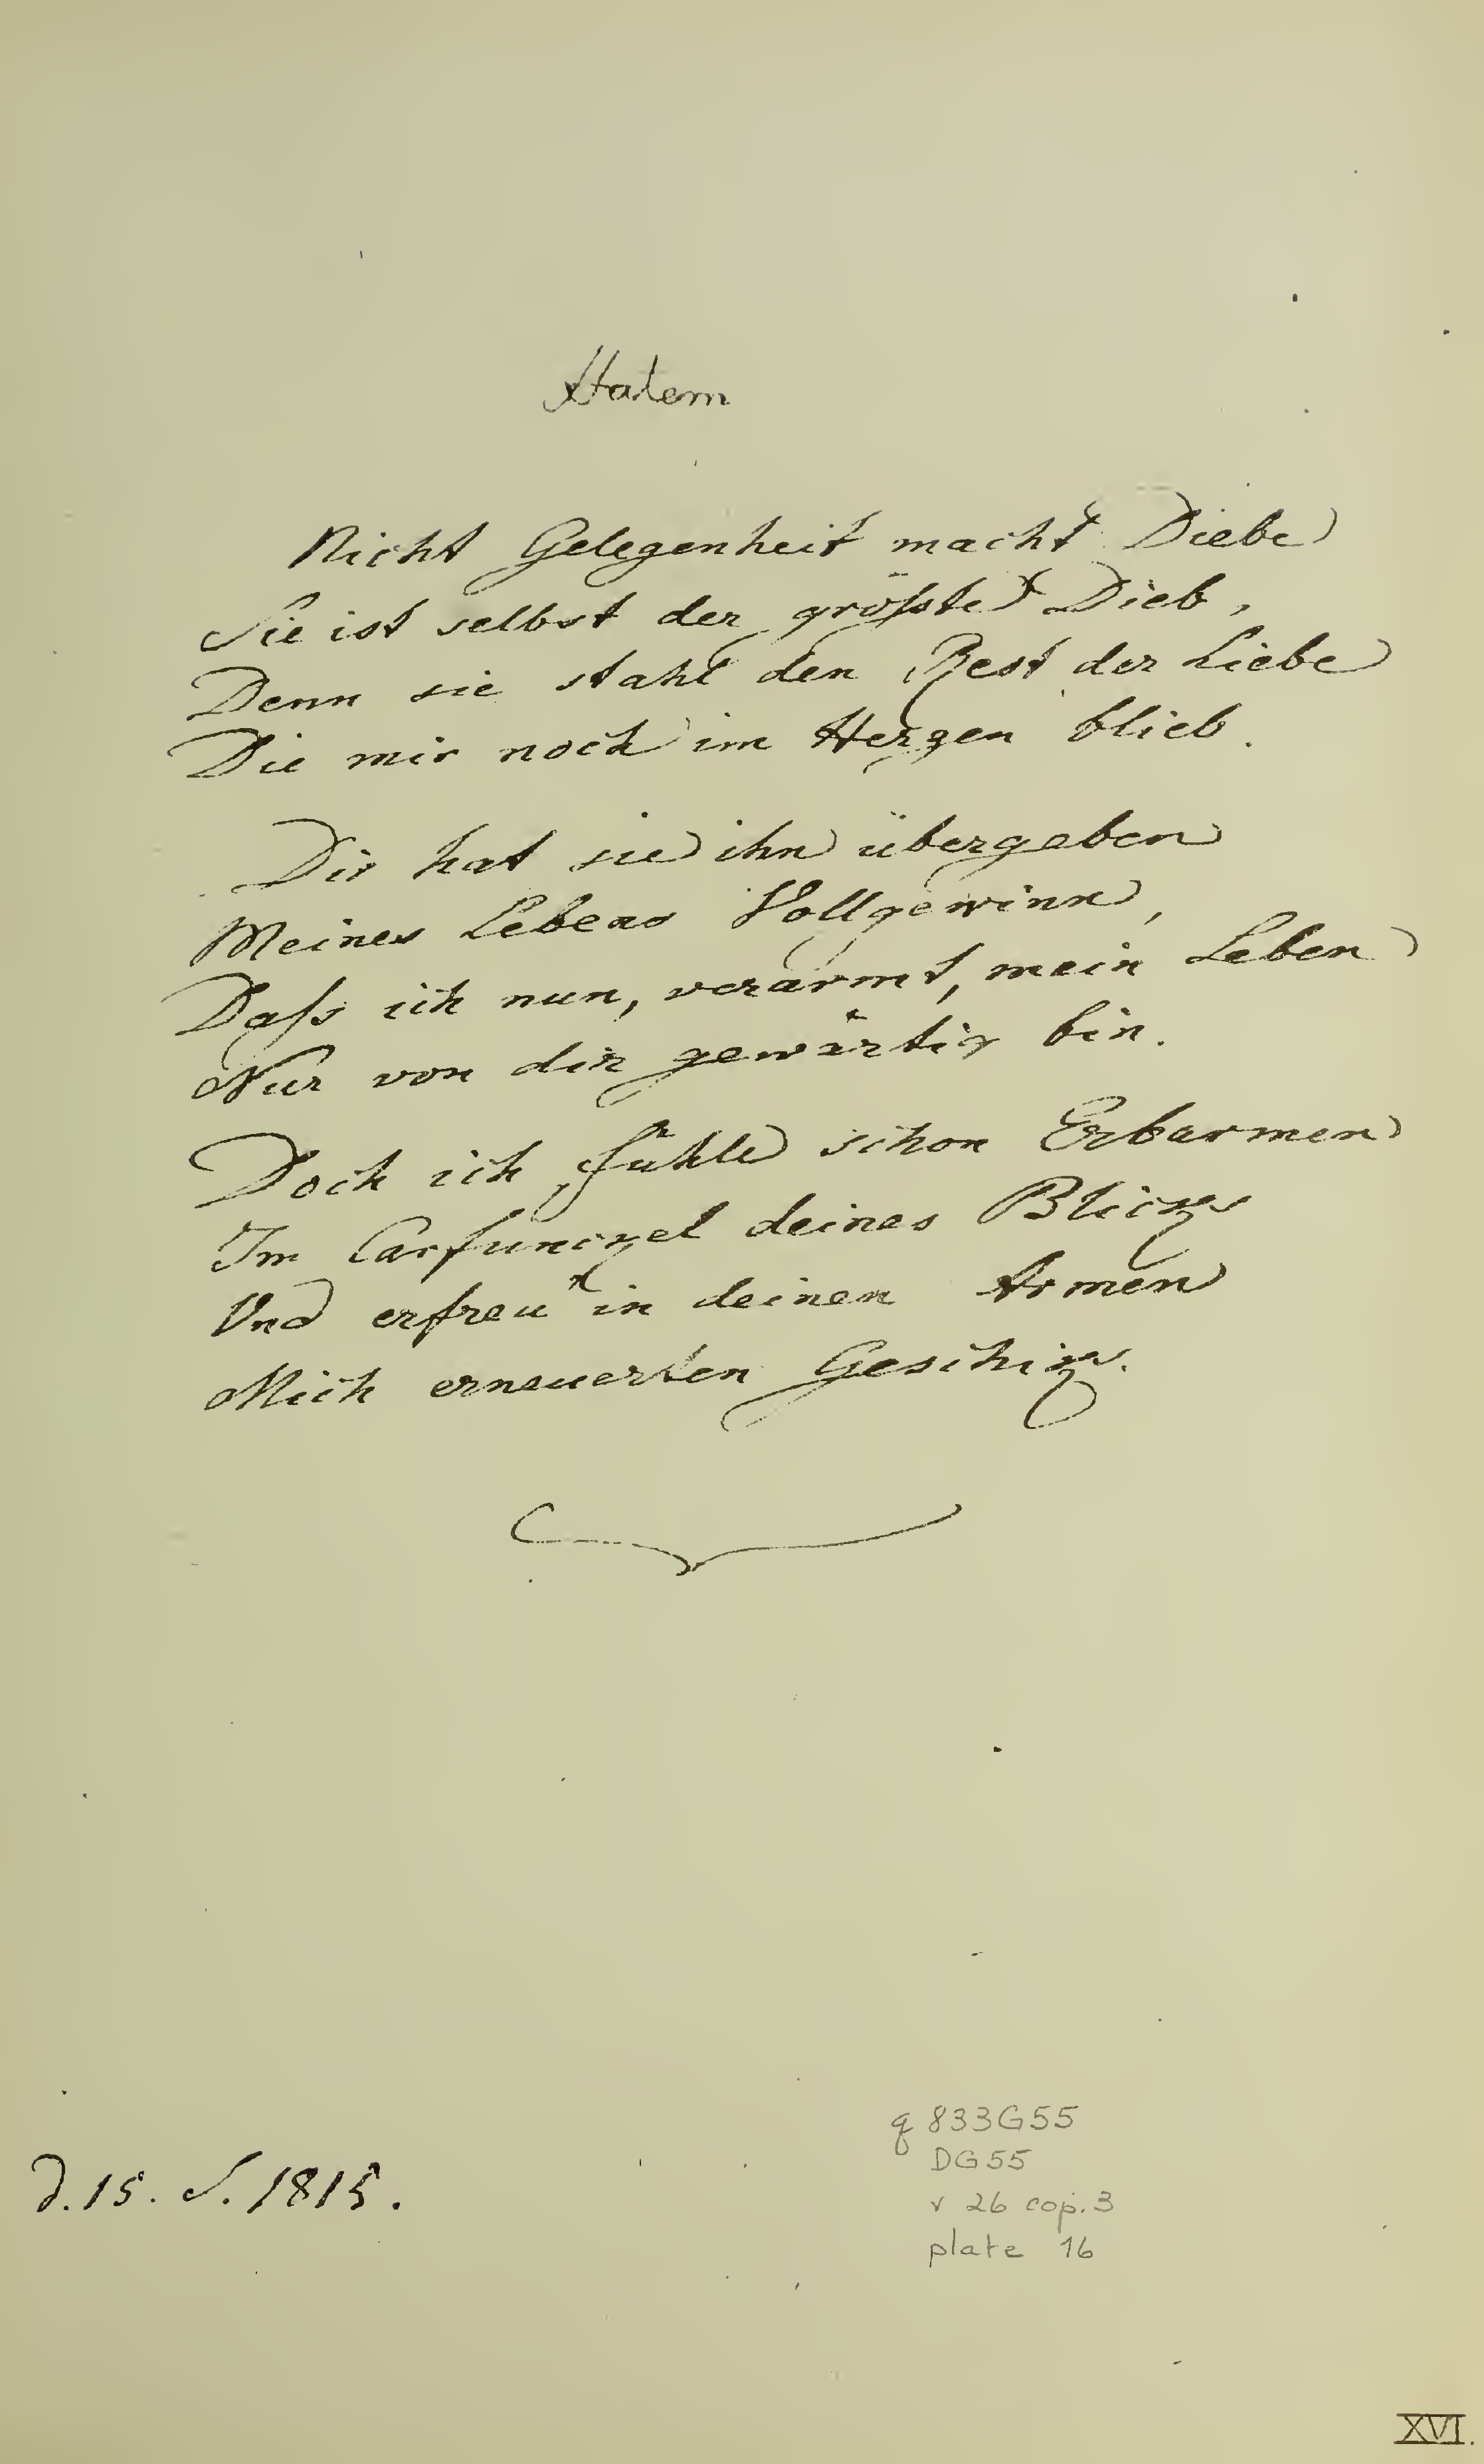 Hatem
Nicht Gelegenheit macht Diebe
Sie ist selbst der größte Dieb,
Denn sie stahl den Rest der Liebe
Die mir noch im Herzen blieb.
Dir hat sie ihn übergeben
Meines Lebens Vollgewinn,
Daß ich nun, verarmt, mein Leben
Nur von dir gewärtig bin.
Doch ich fühle schon Erbarmen
Im Carfunckel deines Blicks
Und erfreu in deinen Armen
Mich erneuerten Geschicks.
d. 15. S. 1815.
q 833G55
DG55
v 26 cop. 3
plate 16
XVI.